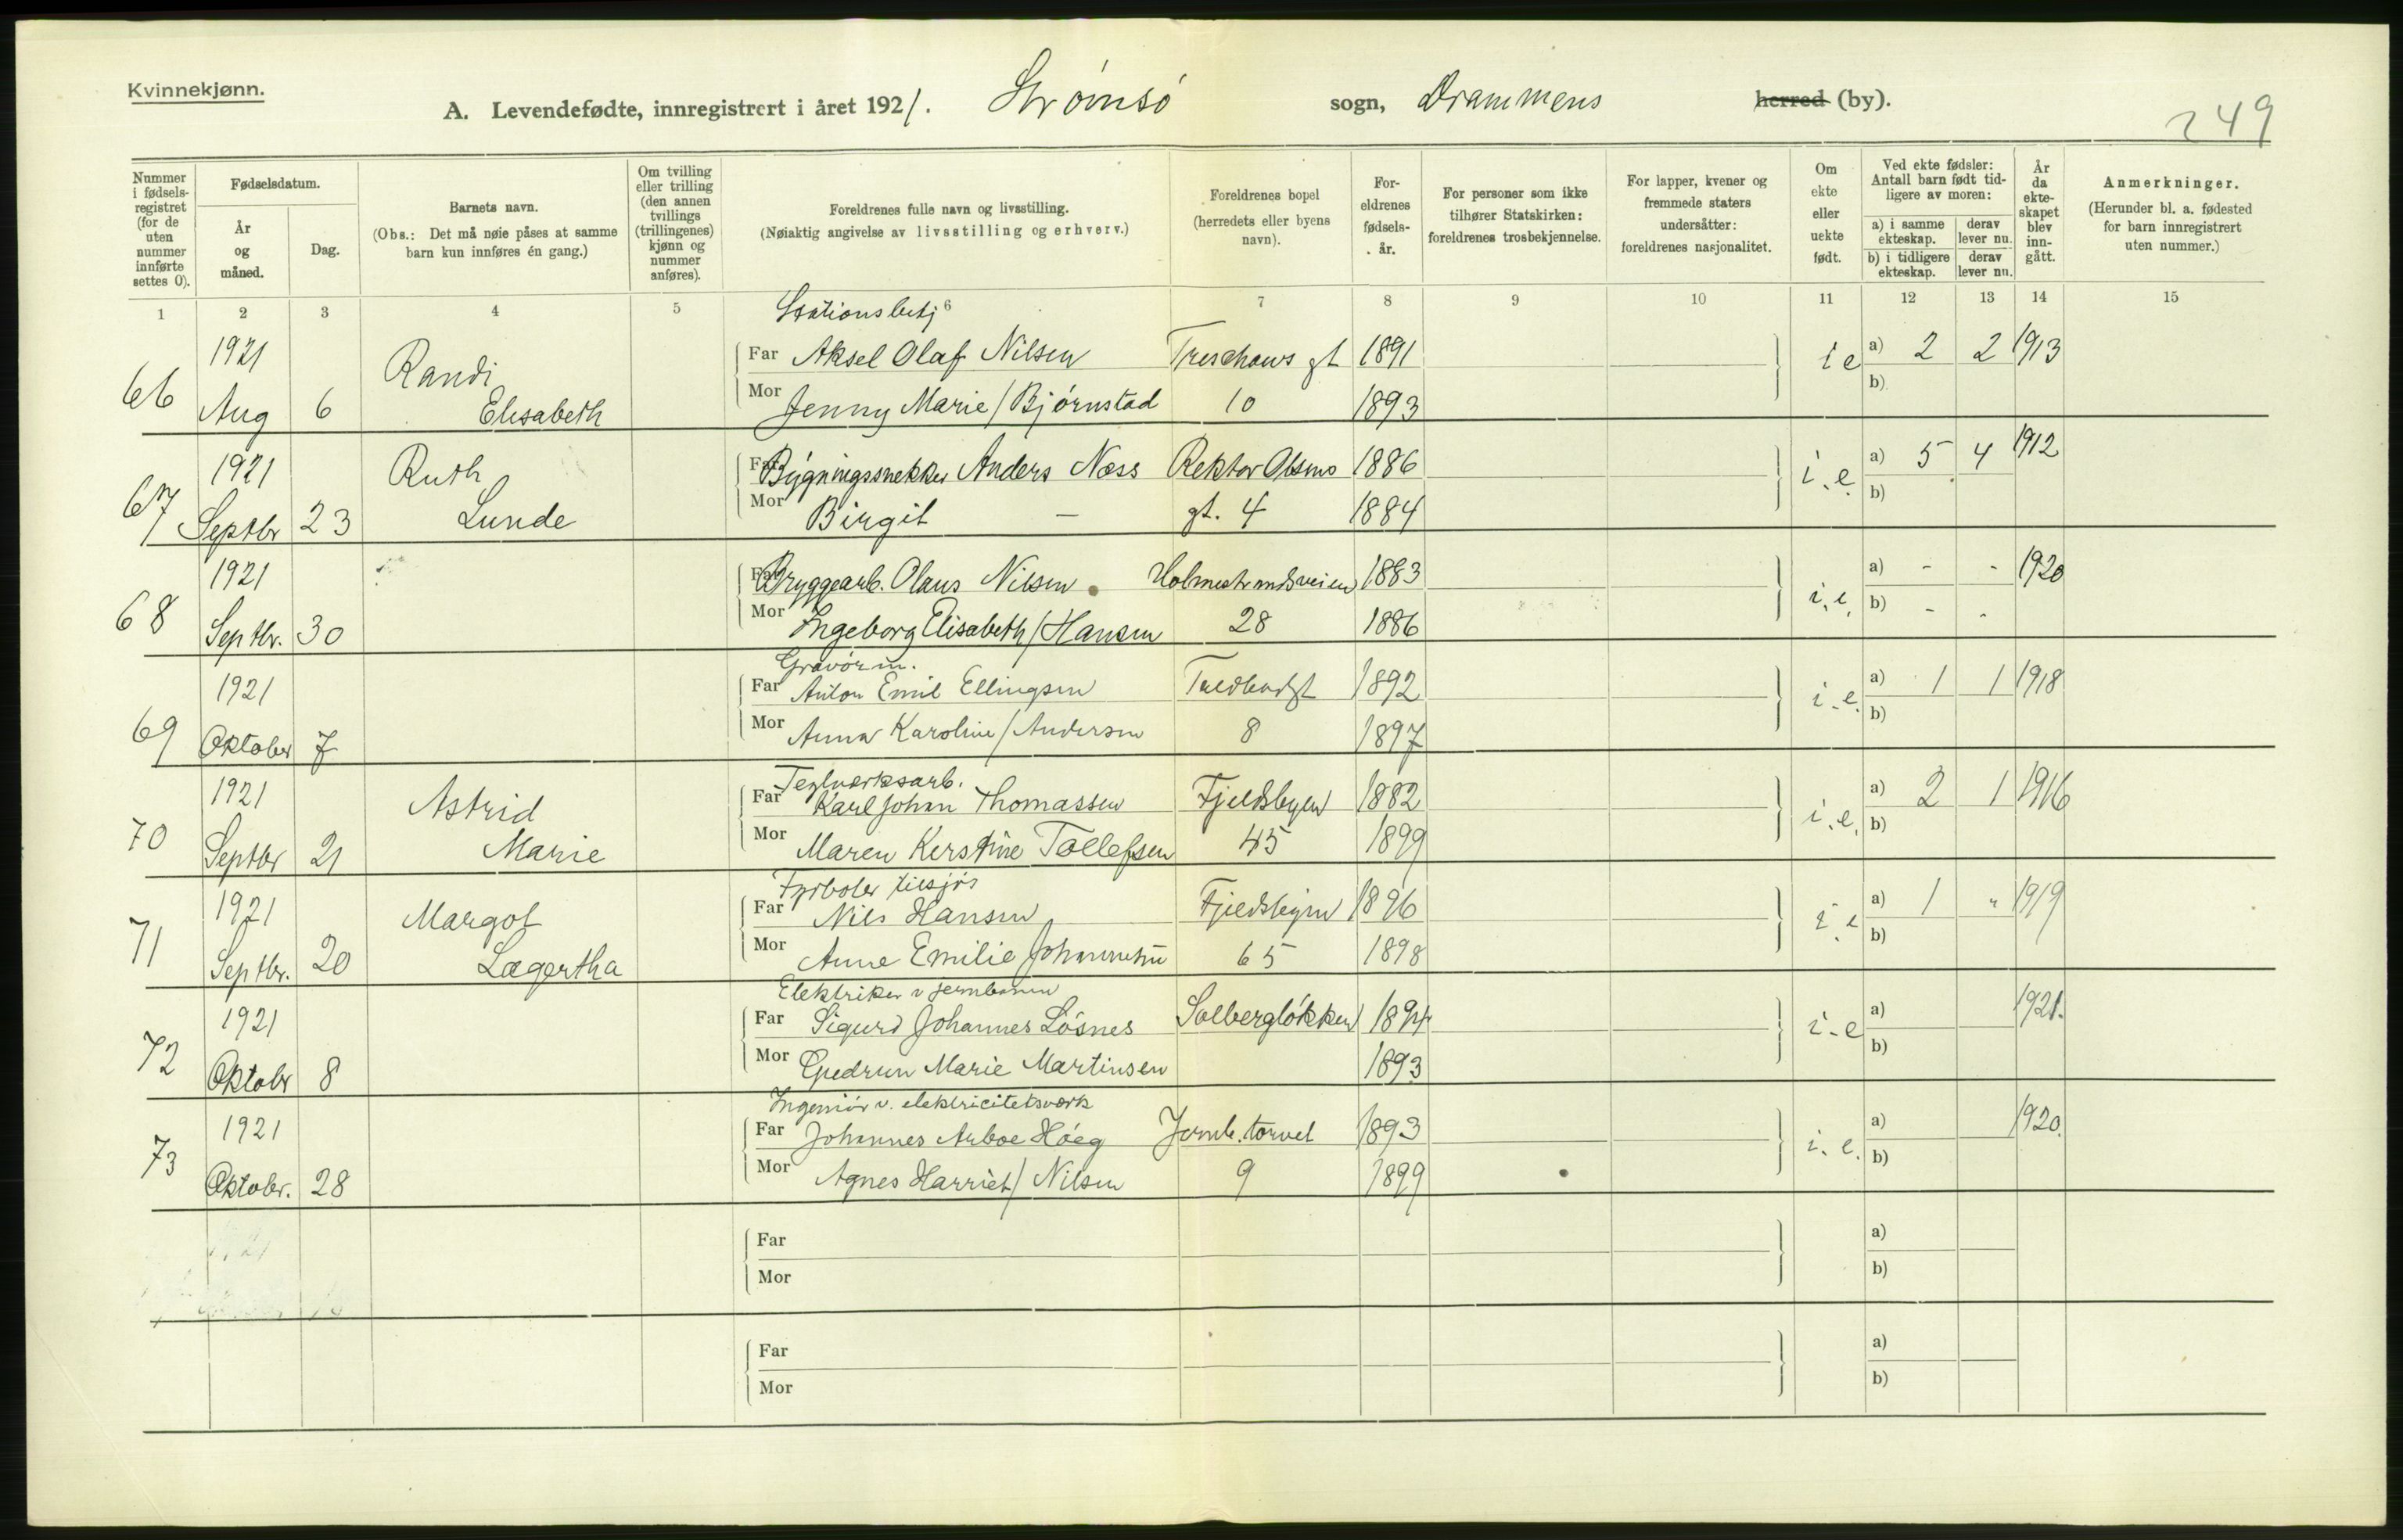 Kvinnekjønn.
A. Levendefødte, innregistrert i året 1921. Strømsø sogn, Drammens herred (by).
249
Nummer i fødsels-registret (for de uten nummer innførte settes 0).
Fødselsdatum.
År og måned.
Dag.
Barnets navn.
(Obs.: Det må nøie påses at samme barn kun innføres én gang.)
Om tvilling eller trilling (den annen tvillings (trillingenes) kjønn og nummer anføres).
Foreldrenes fulle navn og livsstilling.
(Nøiaktig angivelse av livsstilling og erhverv.)
Foreldrenes bopel (herredets eller byens navn).
For-eldrenes fødsels-år.
For personer som ikke tilhører Statskirken: foreldrenes trosbekjennelse.
For lapper, kvener og fremmede staters undersåtter: foreldrenes nasjonalitet.
Om ekte eller uekte født.
Ved ekte fødsler: Antall barn født tid-ligere av moren:
a) i samme ekteskap.
derav lever nu.
b) i tidligere ekteskap.
derav lever nu.
År da ekte-skapet blev inn-gått.
Anmerkninger.
(Herunder bl. a. fødested for barn innregistrert uten nummer.)
1 2 3 4 5 6 7 8 9 10 11 12 13 14 15
Stationsbetj
66 1921 Aug 6 Randi Elisabeth
Far Aksel Olaf Nilsen Treschows gt 1891 i e a) 2 2 1913
Mor Jenny Marie / Bjørnstad 10 1893 b)
67 1921 Septbr 23 Ruth Lunde
Far Bygningssnekker Anders Næss Rektor Olsens 1886 i.e. a) 5 4 1912
Mor Birgit — gt. 4 1884 b)
68 1921 Septbr. 30
Far Bryggearb. Olaus Nilsen Holmestrandsveien 1883 i.e. a) - - 1920
Mor Ingeborg Elisabeth / Hansen 28 1886 b) - -
Gravør m.
69 1921 Oktober 7
Far Anton Emil Ellingsen 1892 i.e. a) 1 1 1918
Mor Anna Karoline / Andersen 8 1897 b)
Teglverksarb.
70 1921 Septbr 21 Astrid Marie
Far Karl Johan Thomassen Fjeldsbyen 1882 i.e. a) 2 1 1916
Mor Maren Kerstine Tollefsen 45 1899 b)
Fyrbøter tilsjøs
71 1921 Septbr. 20 Margot Lægertha
Far Nils Hansen Fjeldsbyen 1896 i.e a) 1 " 1919
Mor Anne Emilie Johannesen 65 1898 b)
Elektriker v jernbanen
72 1921 Oktobr 8
Far Sigurd Johannes Løsnes Solbergløkken 1894 i-e a) 1921.
Mor Gudrun Marie Martinsen 1893 b)
Ingeniør v. elektricitetsverk
73 1921 Oktobr. 28
Far Johannes Arboe Høeg Jernb. torvet 1893 i.e. a) 1920.
Mor Agnes Harriet / Nilsen 9 1899 b)
Far a)
Mor b)
Far a)
Mor b)